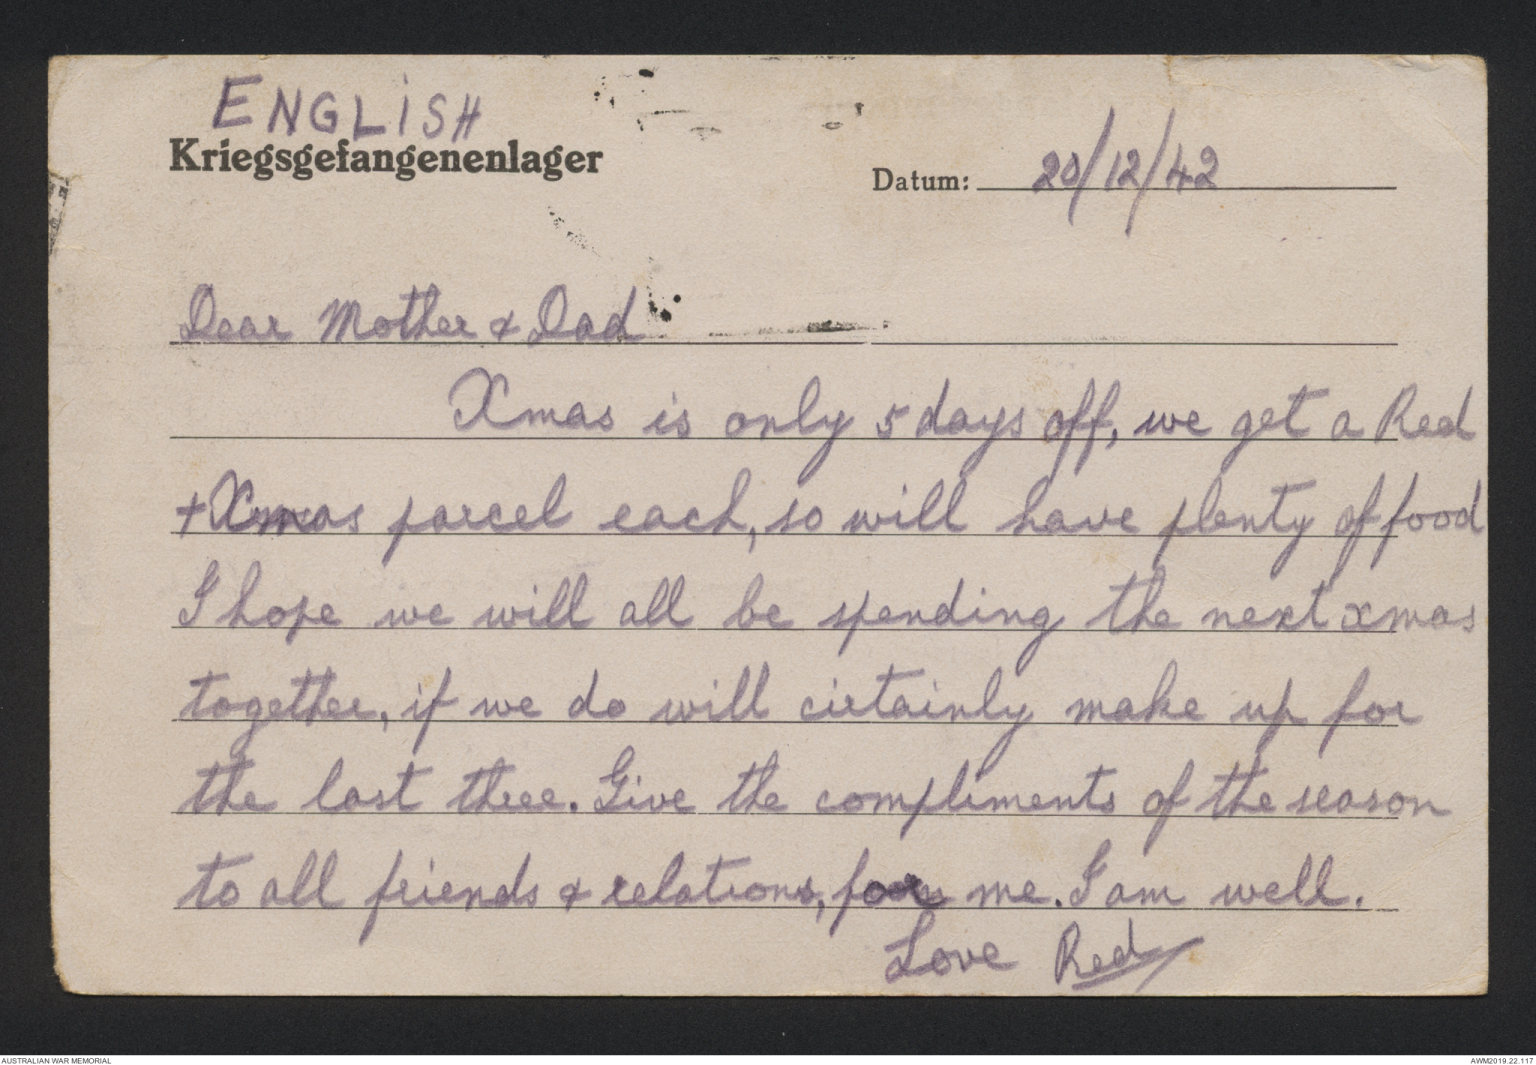 ENGLISH
Kriegsgefangenenlager
Datum: 20/12/42
Dear Mother & Dad
Xmas is only 5 days off, we get a Red
+ Xmas parcel each, so will have plenty of food
I hope we will all be spending the next xmas
together, if we do will cirtainly make up for
the last three. Give the compliments of the season
to all friends & relations, for me. I am well.
Love Red
AUSTRALIAN WAR MEMORIAL
AWM2019.22.117